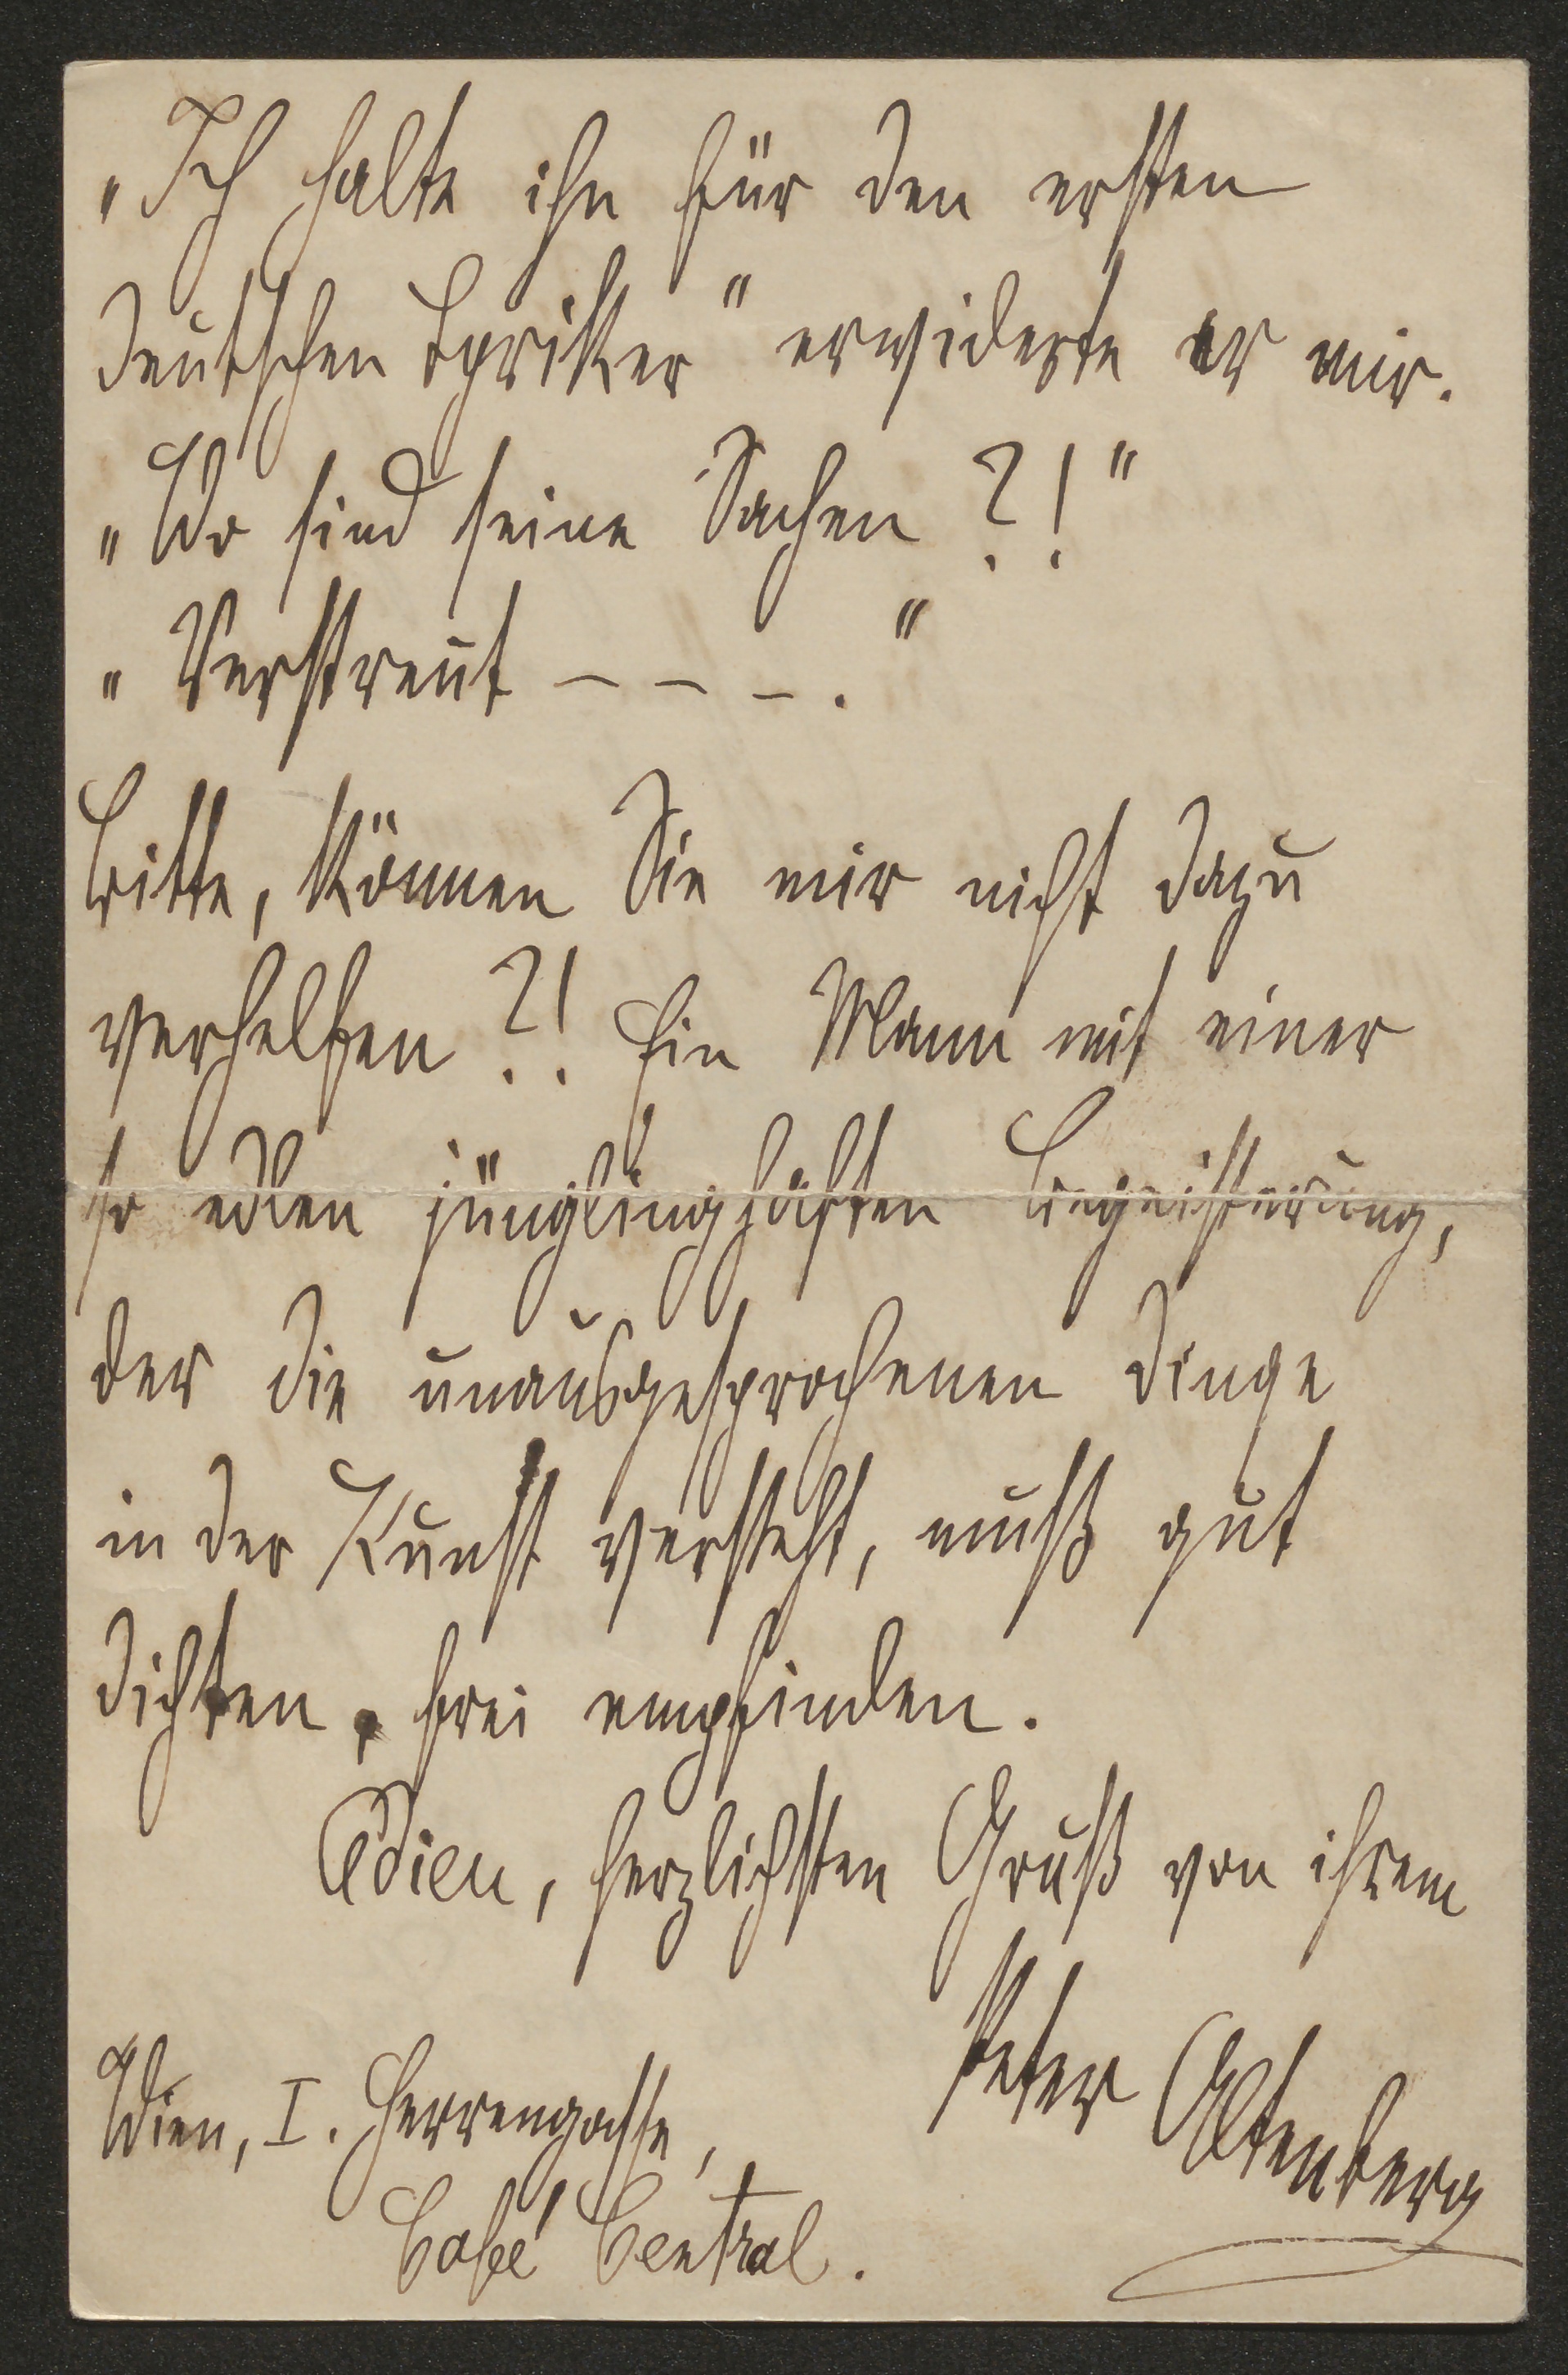 „Ich halte ihn für den ersten
deutschen Lyriker" erwiderte er mir.
„Wo sind seine Sachen ?!"
„Verstreut – – –."
Bitte, können Sie mir nicht dazu
verhelfen ?! Ein Mann mit einer
so edlen jünglinghaften Begeisterung,
der die unausgesprochenen Dinge
in der Kunst versteht, muß gut
dichten, frei empfinden.
Adieu, herzlichsten Gruß von ihrem
Peter Altenberg
Wien, I. Herrengasse,
Café Central.